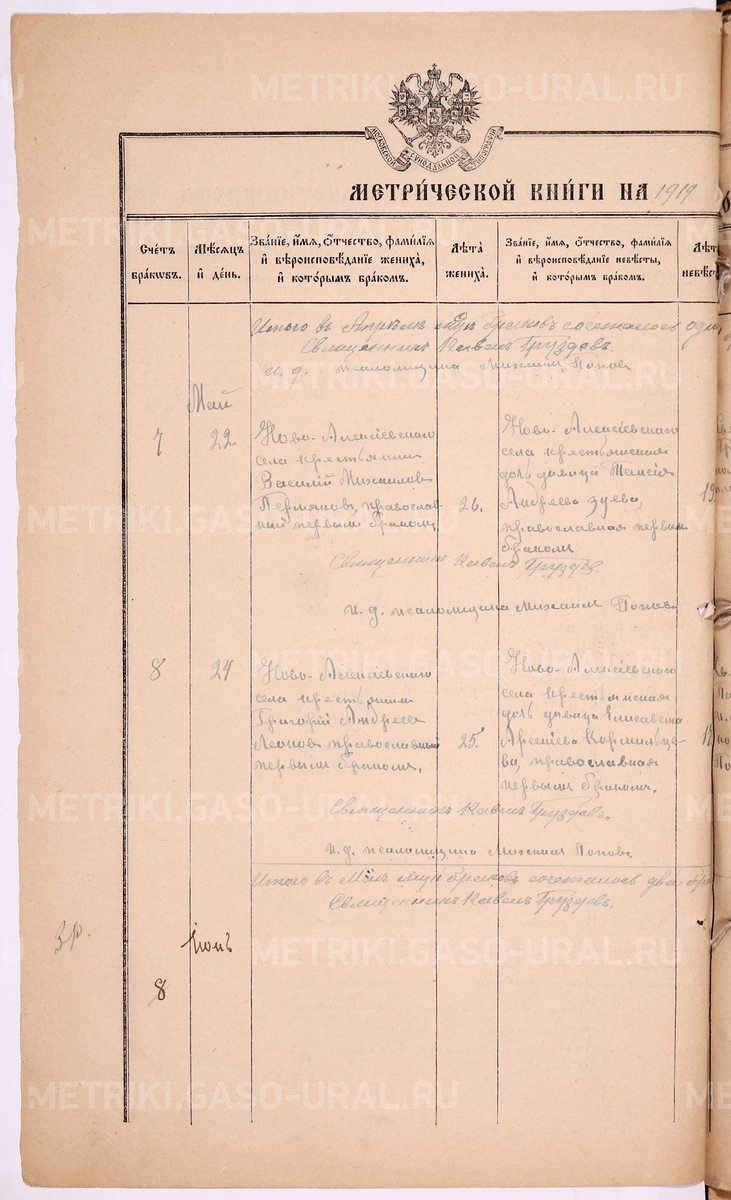 МОСКОВСКОЙ СѴНОДАЛЬНОЙ ТИПОГРАФІИ
МЕТРИ́ЧЕСКОЙ КНИ́ГИ НА 1919
Сче́тъ бра́кѡвъ.
Мѣ́сѧцъ и҆ де́нь.
Зва́нїе, и҆́мѧ, ѻ҆́тчество, фамı́лїѧ и҆ вѣроисповѣ́данїе жениха̀, и҆ кото́рымъ бра́комъ.
Лѣ́та жениха̀.
Зва́нїе, и҆́мѧ, ѻ҆́тчество, фамı́лїѧ и҆ вѣроисповѣ́данїе невѣ́сты, и҆ кото́рымъ бра́комъ.
Лѣ́т
невѣ́с
Итого въ Апрѣлѣ мцѣ браковъ сочеталось оди
Священникъ Павелъ Груздевъ.
И. д. псаломщика Михаилъ Поповъ
Май
7
22
Ново-Алексіевскаго
села крестьянинъ
Василій Михаиловъ
Пермяковъ, православ-
ный первымъ бракомъ
26.
Ново-Алексіевскаго
села крестьянская
дочь девица Таисія
Андреева Зуева,
православная первым
бракомъ
19
Священникъ Павелъ Груздев.
И. д. псаломщика Михаилъ Поповъ
8
24
Ново-Алексіевскаго
села крестьянинъ
Григорій Андреев
Леонов православный
первымъ бракомъ.
25.
Ново-Алексіевскаго
села крестьянская
дочь девица Елисавета
Арсеніева Кормильце-
ва, православная
первымъ бракомъ.
Священникъ Павелъ Груздевъ.
И. д. псаломщика Михаилъ Поповъ
Итого въ Маѣ мцѣ браковъ сочеталось два бра
Священникъ Павелъ Груздевъ.
Зр.
Іюнь
8
METRIKI.GASO-URAL.RU